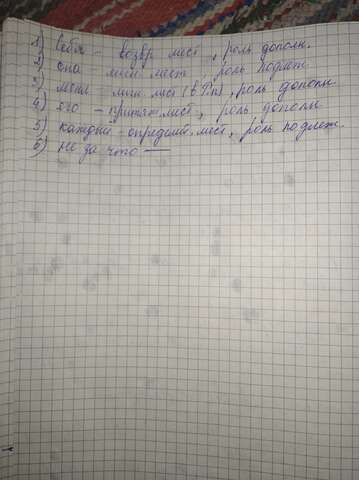 1) себя - возвр мест, роль дополн.
2) она - личн мест роль подлеж.
3) меня - личн мест (в Р.п), роль дополн
4) его - притяж.мест, роль дополн
5) каждый - определит. мест, роль подлеж.
6) не за что —